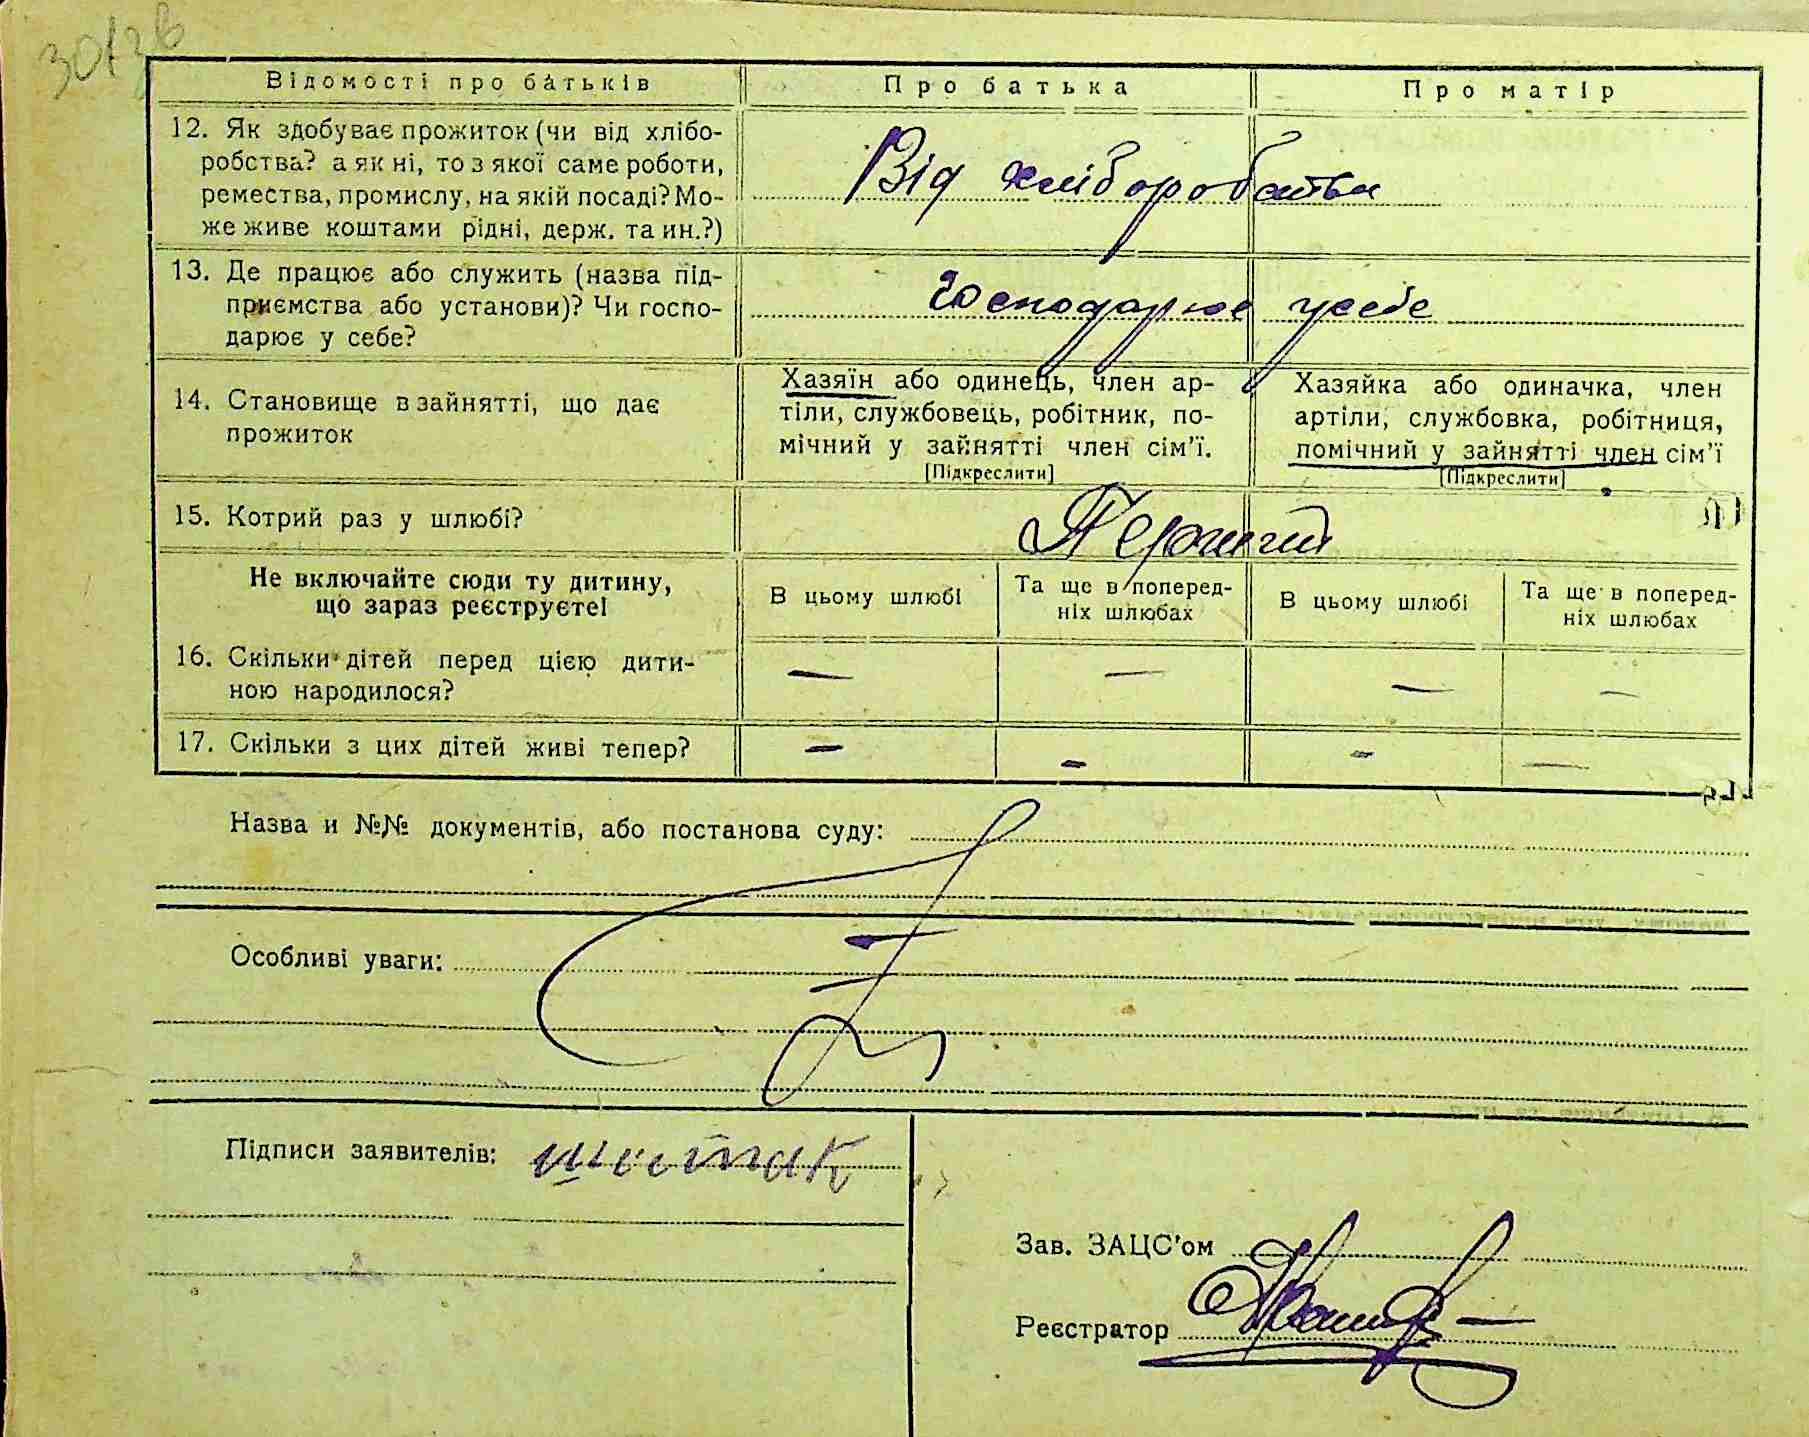 Відомості про батьків Про батька Про матір
12. Як здобуває прожиток (чи від хлібо-
робства? а як ні, то з якої саме роботи,
ремества, промислу, на якій посаді? Мо-
же живе коштами рідні, держ. та ин.?)
Від хліборобства
13. Де працює або служить (назва під-
приємства або установи)? Чи госпо-
дарює у себе?
Господарює у себе
14. Становище в зайнятті, що дає
прожиток
Хазяїн або одинець, член ар-
тіли, службовець, робітник, по-
мічний у зайнятті член сім'ї.
[Підкреслити]
Хазяйка або одиначка, член
артіли, службовка, робітниця,
помічний у зайнятті член сім'ї
[Підкреслити]
15. Котрий раз у шлюбі?
Перший
Не включайте сюди ту дитину,
що зараз реєструєте!
В цьому шлюбі
Та ще в поперед-
ніх шлюбах
В цьому шлюбі
Та ще в поперед-
ніх шлюбах
16. Скільки дітей перед цією дити-
ною народилося?
— — — —
17. Скільки з цих дітей живі тепер?
— — — —
Назва и №№ документів, або постанова суду:
Особливі уваги:
Підписи заявителів:
Зав. ЗАЦС'ом
Реєстратор